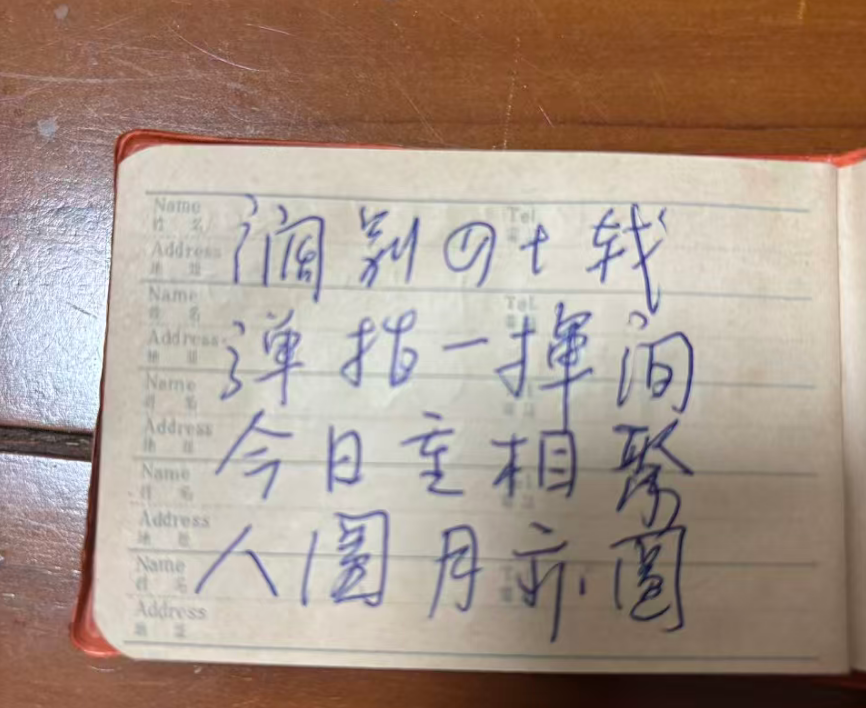 Name
姓 名
Tel.
电 话
Address
地 址
阔别四十载
Name
姓 名
Tel.
Address
地 址
弹指一挥间
Name
姓 名
Address
地 址
今日重相聚
Name
姓 名
Address
地 址
人圆月亦圆
Name
姓 名
Address
地 址